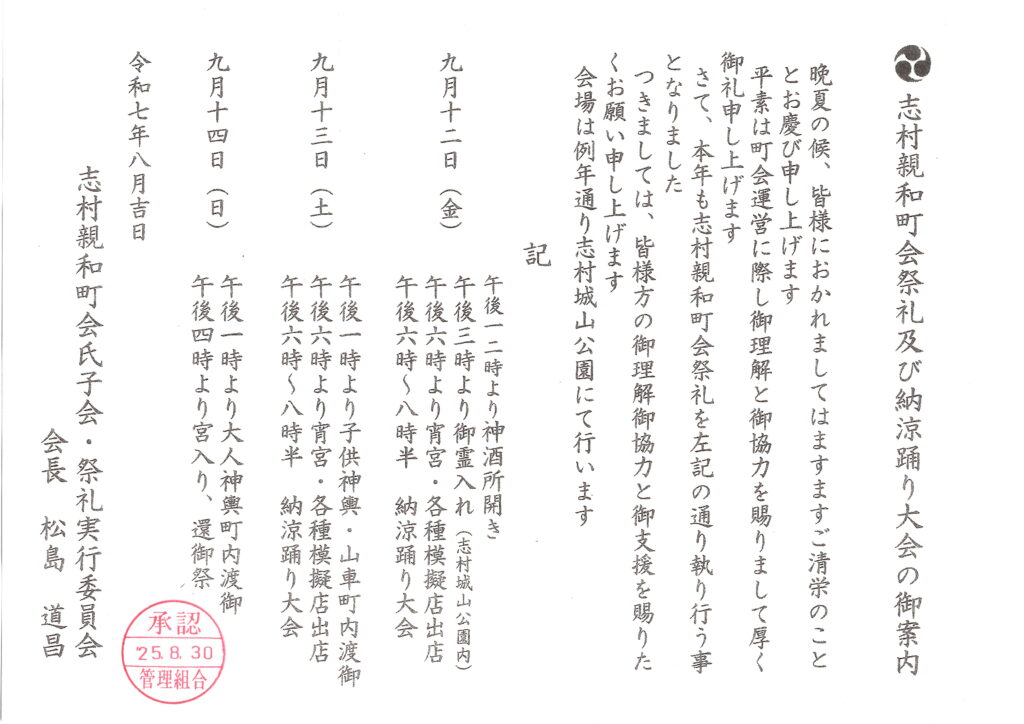 志村親和町会祭礼及び納涼踊り大会の御案内
晩夏の候、皆様におかれましてはますますご清栄のこと
とお慶び申し上げます
平素は町会運営に際し御理解と御協力を賜りまして厚く
御礼申し上げます
さて、本年も志村親和町会祭礼を左記の通り執り行う事
となりました
つきましては、皆様方の御理解御協力と御支援を賜りた
くお願い申し上げます
会場は例年通り志村城山公園にて行います
記
九月十二日（金）
午後一二時より神酒所開き
午後三時より御霊入れ（志村城山公園内）
午後六時より宵宮・各種模擬店出店
午後六時～八時半　納涼踊り大会
九月十三日（土）
午後一時より子供神輿・山車町内渡御
午後六時より宵宮・各種模擬店出店
午後六時～八時半　納涼踊り大会
九月十四日（日）
午後一時より大人神輿町内渡御
午後四時より宮入り、還御祭
令和七年八月吉日
志村親和町会氏子会・祭礼実行委員会
会長　松島　道昌
承認
'25.8.30
管理組合